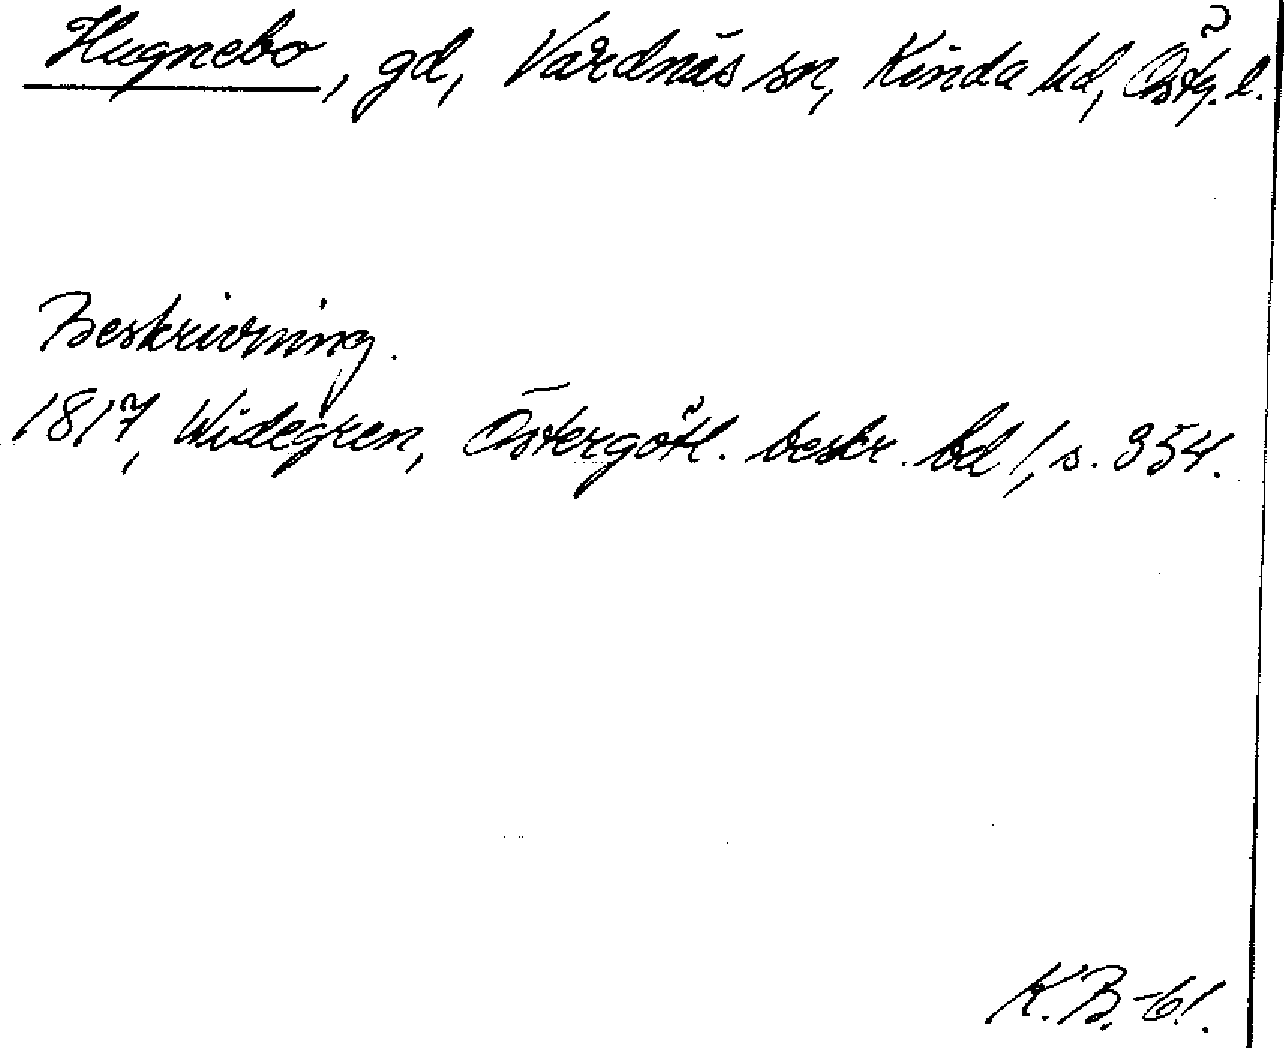 Hugnebo, gd, Vårdnäs sn, Kinda hd, Östg. l.
Beskrivning.
1817, Widegren, Östergötl. beskr. bd 1, s. 354.
K.B.-61.